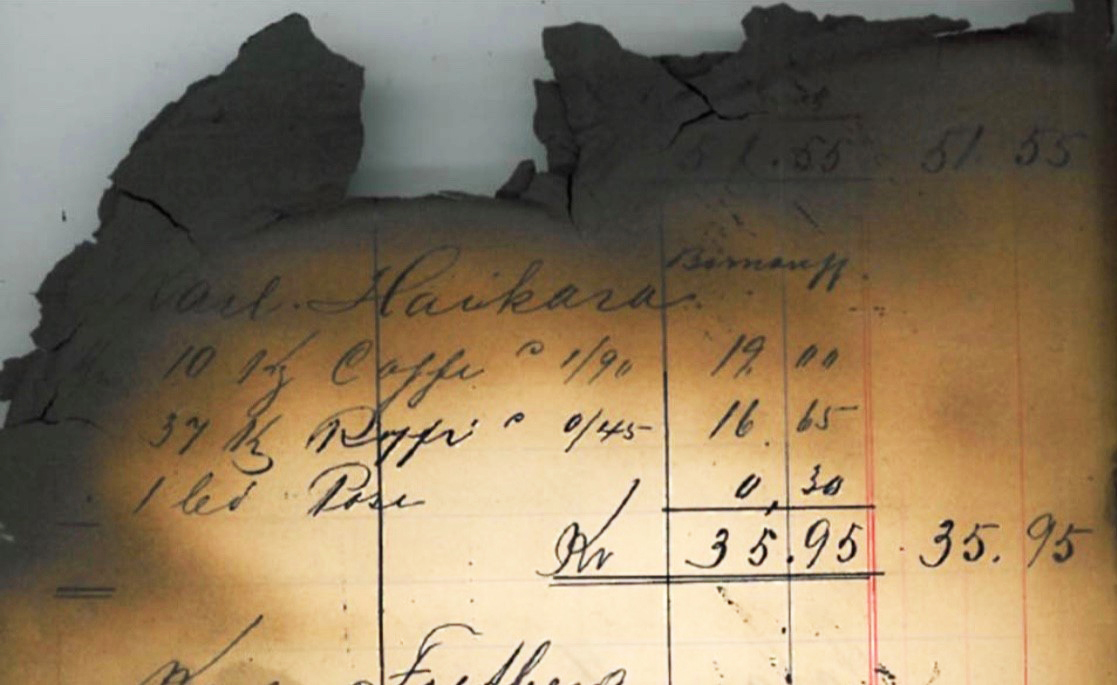 51.55 51.55
Carl. Haikara.
10 Kg Caffe a 1/90 19. 00
37 Kg a 0/45 16. 65
1 led Pose 0, 30
Kr 35.95 35.95